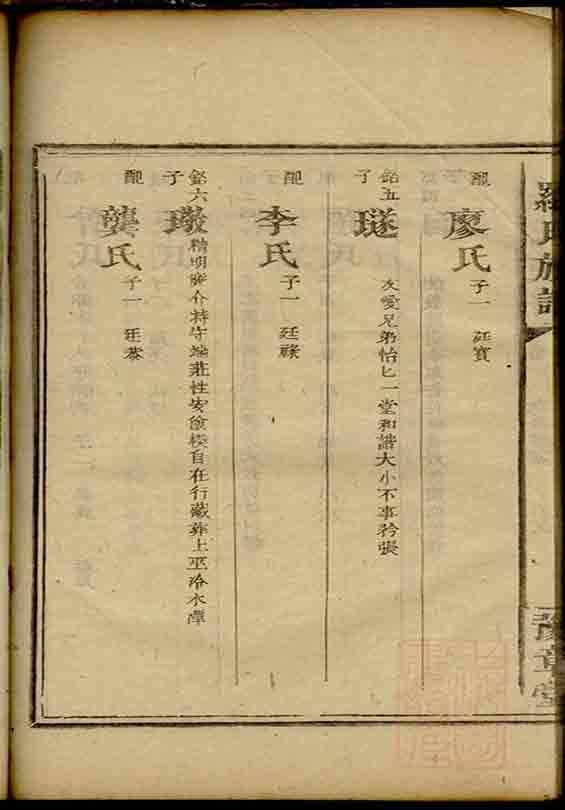 羅氏族譜
豫章堂
配 廖氏 子一 廷寶
鉊五子 璲 友愛兄弟怡匕一堂和諧大小不事矜張
配 李氏 子一 廷祿
鉊六子 璥 精明廉介持守端莊性安儉樸自在行藏葬上巫冷水潭
配 龔氏 子一 廷泰